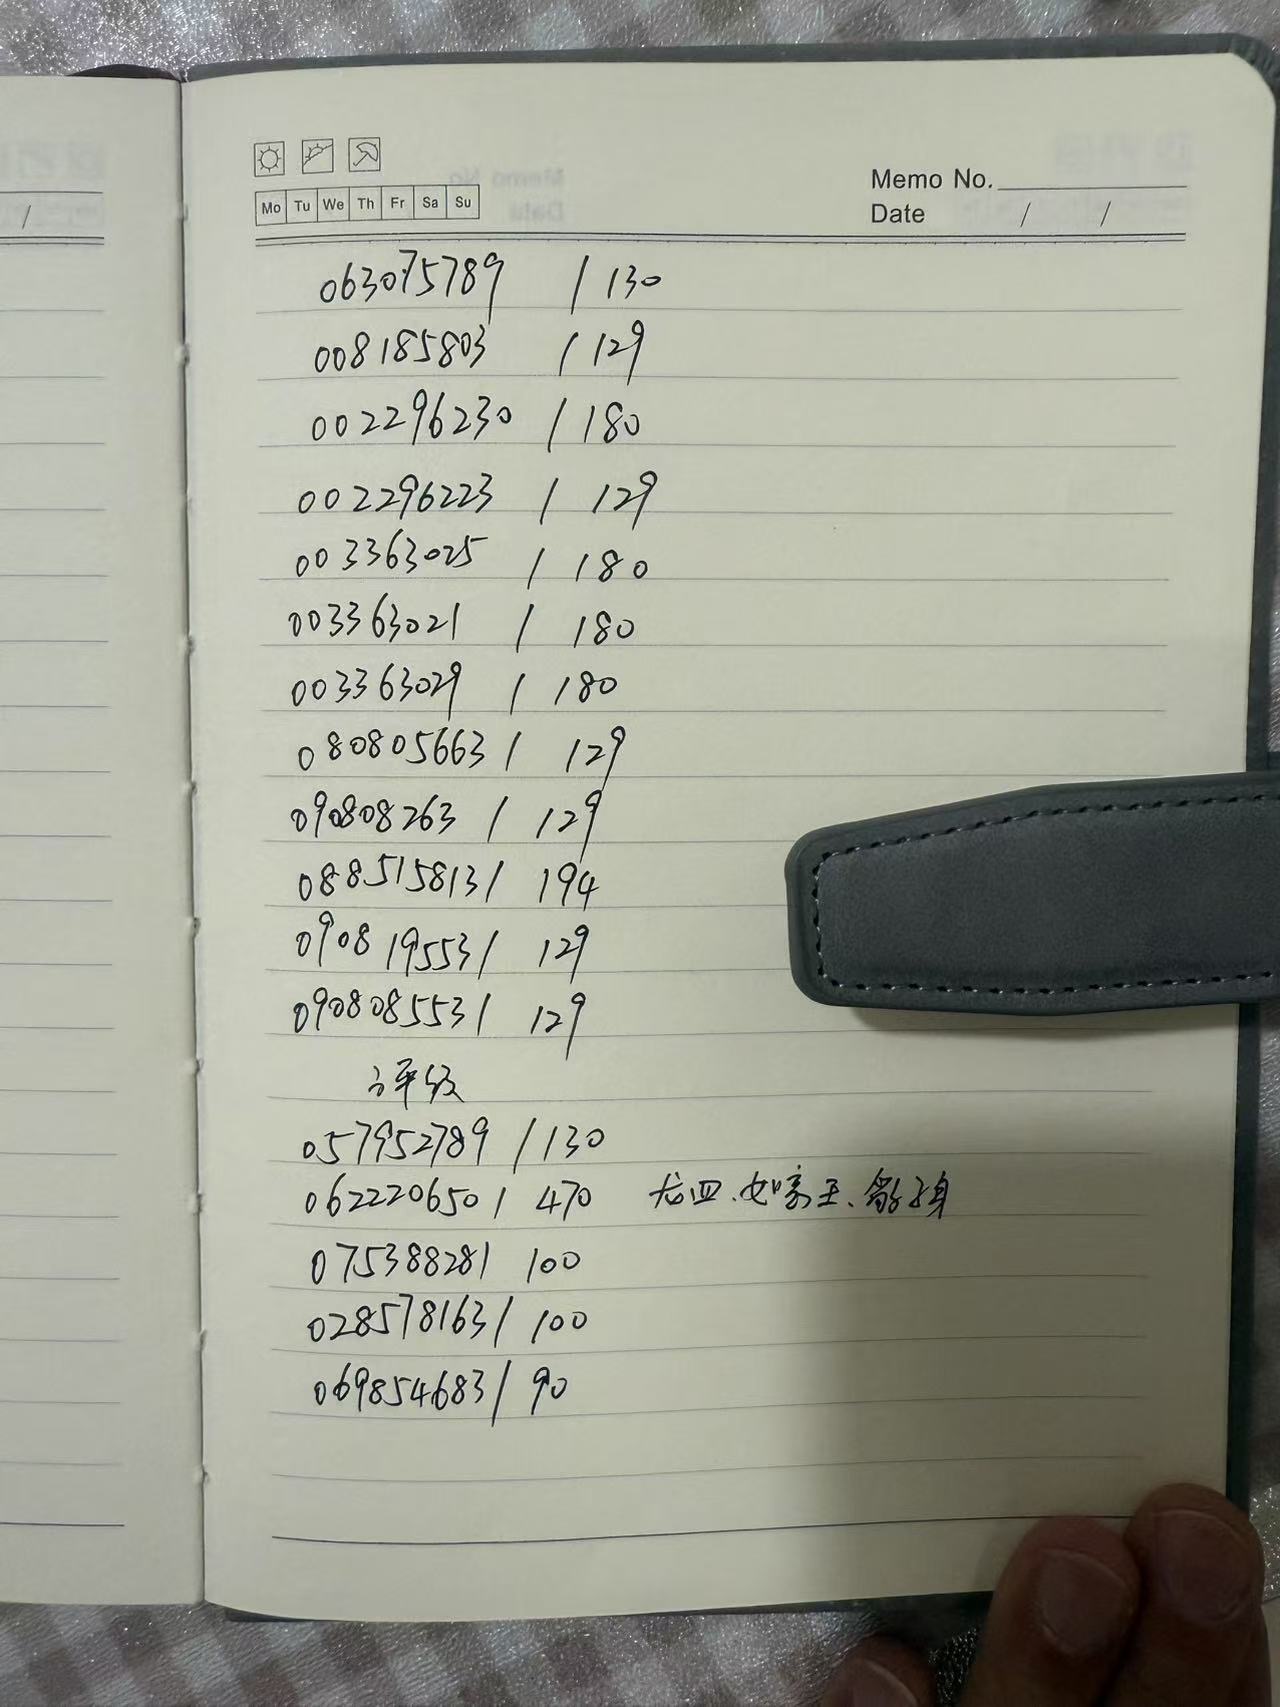 Memo No.
Date / /
Mo Tu We Th Fr Sa Su
063075789 / 130
008185803 / 129
002296230 / 180
002296223 / 129
003363025 / 180
003363021 / 180
003363029 / 180
080805663 / 129
090808263 / 129
088515813 / 194
090819553 / 129
090808553 / 129
评级
057952789 / 130
062220650 / 470
075388281 100
028578163 / 100
069854683 / 90